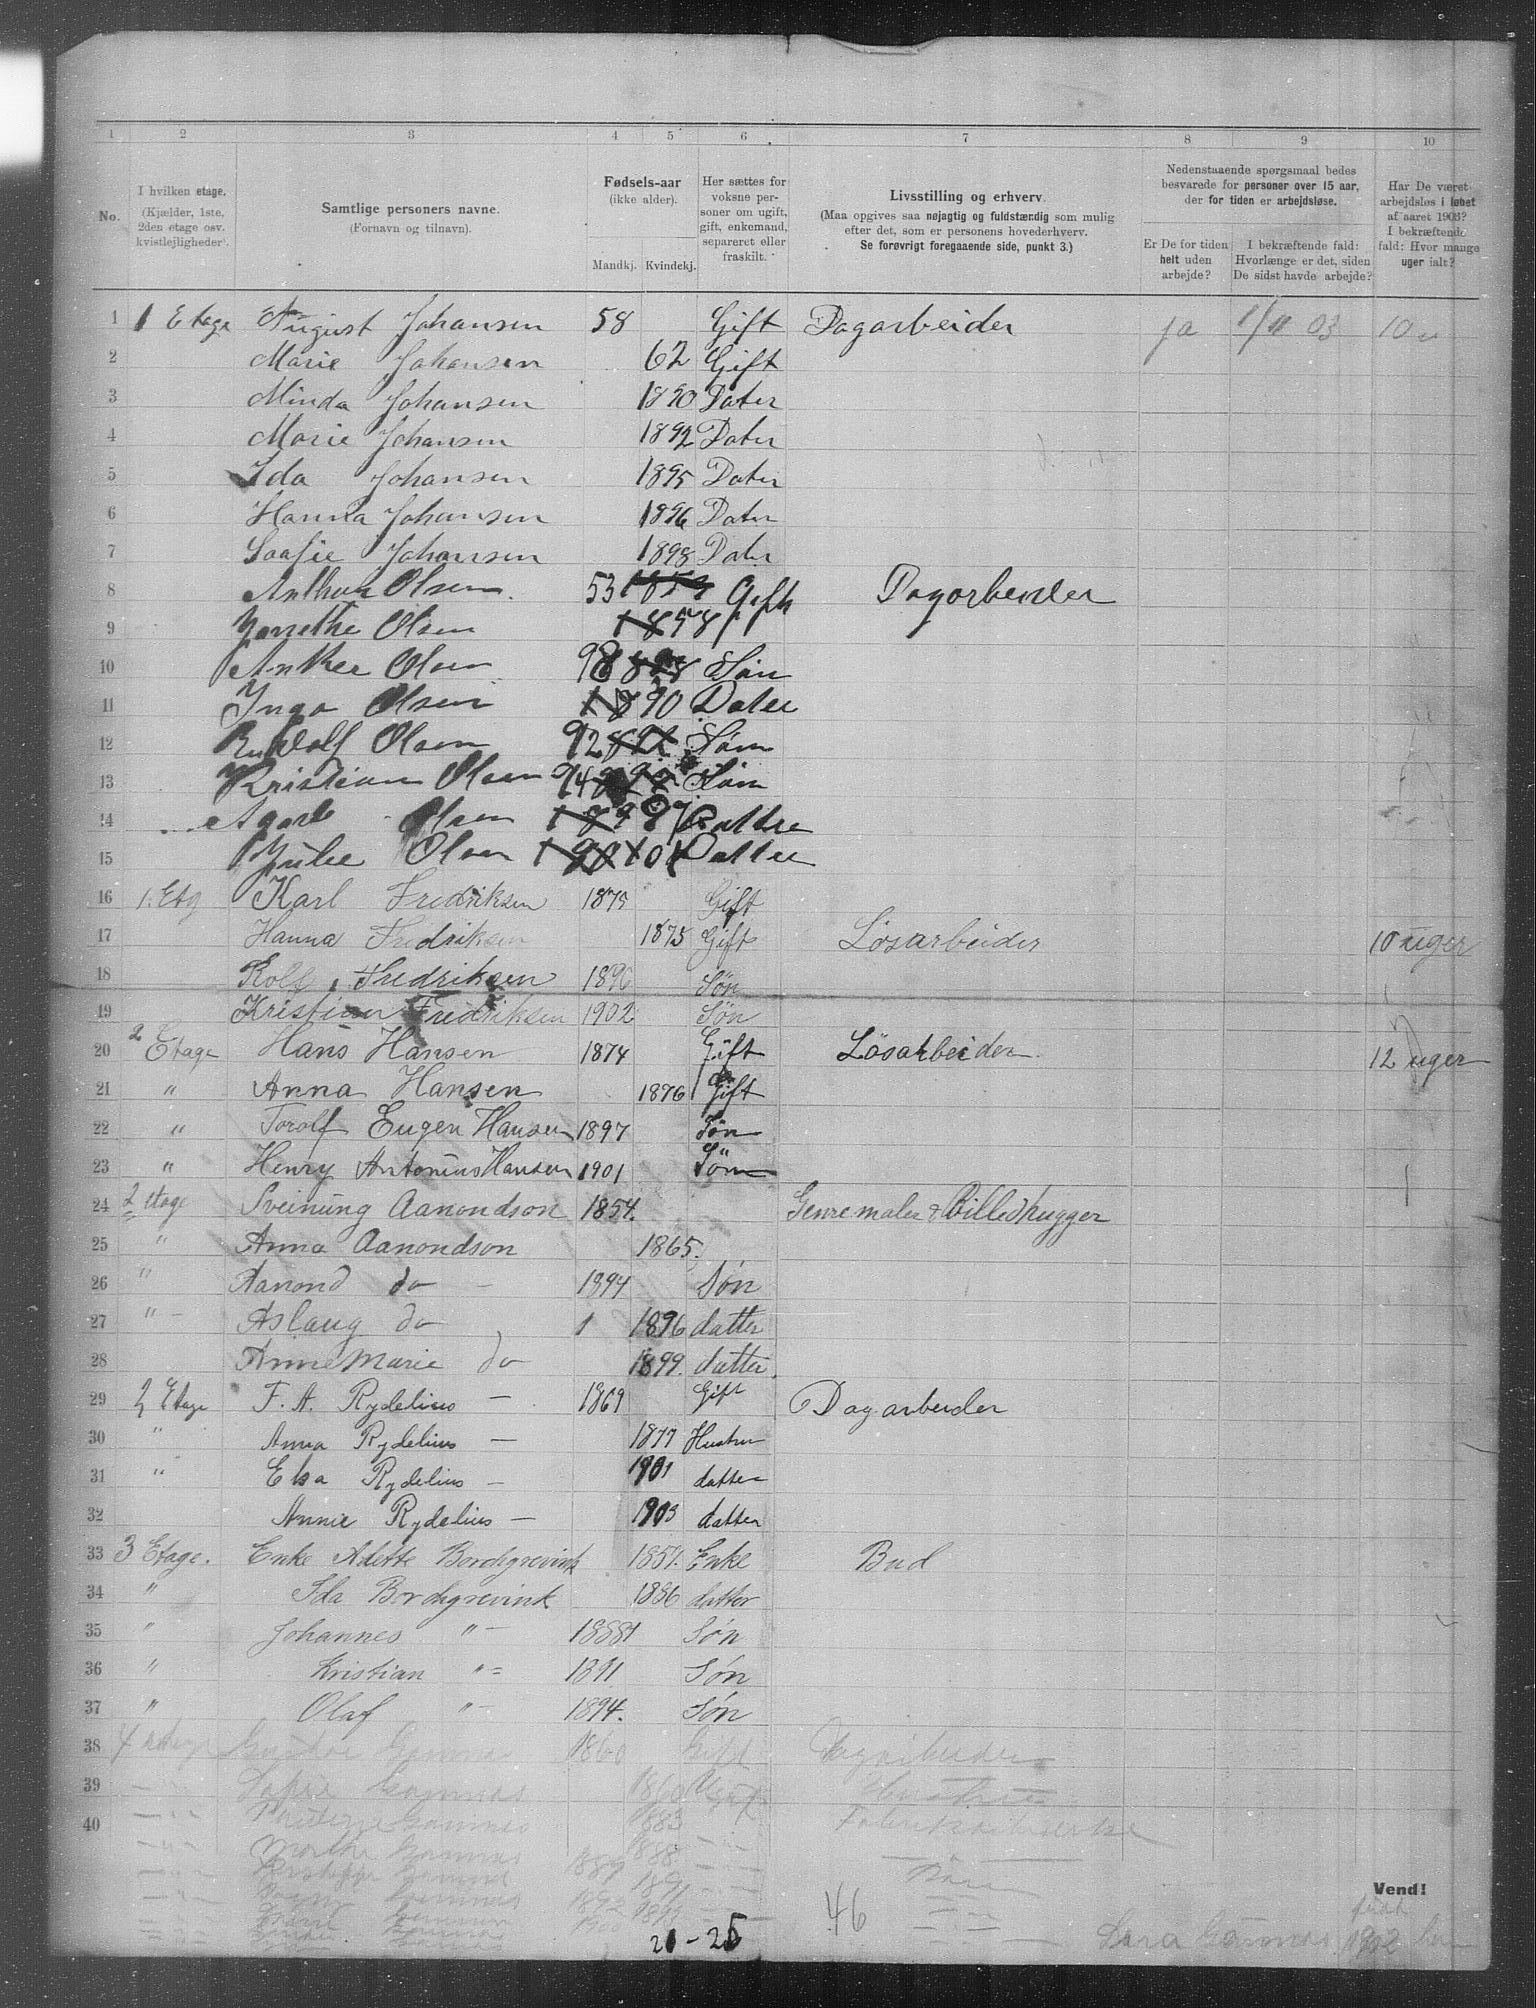 1 2 3 4 5 6 7 8 9 10
No.
I hvilken etage.
(Kjælder, 1ste,
2den etage osv.
kvistlejligheder).
Samtlige personers navne.
(Fornavn og tilnavn).
Fødsels-aar
(ikke alder).
Mandkj. Kvindekj.
Her sættes for
voksne per-
soner om ugift,
gift, enkemand,
separeret eller
fraskilt.
Livsstilling og erhverv.
(Maa opgives saa nøjagtig og fuldstændig som mulig
efter det, som er personens hovederhverv.
Se forøvrigt foregaaende side, punkt 3.)
Nedenstaaende spørgsmaal bedes
besvarede for personer over 15 aar,
der for tiden er arbejdsløse.
Er De for tiden
helt uden
arbejde?
I bekræftende fald:
Hvorlænge er det, siden
De sidst havde arbejde?
Har De været
arbejdsløs i løbet
af aaret 1903?
I bekræftende
fald: Hvor mange
uger ialt?
1 1 Etage August Johansen 58 Gift Dagarbeider ja 1/11 03 10 u
2 Marie Johansen 62 Gift
3 Minda Johansen 1890 Dater
4 Marie Johansen 1892 Dater
5 Ida Johansen 1895 Dater
6 Hanna Johansen 1896 Dater
7 Soafie Johansen 1898 Dater
8 Anthon Olsen. 53 1853 Gift Dagarbeider
9 Olsen 1858
10 Anker Olsen 98 Søn
11 Inga Olsen 1890 Dater
12 Rudolf Olsen 92 Søn
13 Kristian Olsen 94 Søn
14 Olsen Dattre
15 Julie Olsen Datter
16 1. Etg Karl Fredriksen 1875 Gift
17 Hanna Fredriksen 1875 Gift Løsarbeider 10 uger
18 Rolf Fredriksen 1890 Søn
19 Kristian Fredriksen 1902 Søn
20 2 Etage Hans Hansen 1874 Gift Løsarbeider. 12 uger
21 " Anna Hansen 1876 Gift
22 " Torolf Eugen Hansen 1897 Søn
23 " Henry Antonius Hansen 1901 Søn
24 2 etage Sveinung Aanondson 1854. Genremaler & Billedhugger
25 " Anna Aanondson 1865.
26 " Aanond do - 1894 Søn
27 " - Aslaug do 1 1896 datter
28 Anne Marie do 1899. datter.
29 2 Etage F. A. Rydelius - 1869 Gift Dagarbeider
30 " Anna Rydelius - 1877 Hustru
31 " Elsa Rydelius - 1901 datter
32 Annie Rydelius - 1903 datter
33 3 Etage. Enke Adette Borchgrevink 1859. Enke Bud
34 " Ida Borchgrevink 1886 datter
35 " Johannes " - 1888 Søn
36 " Kristian " = 1891 Søn
37 " Olaf " - 1894. Søn
38 4 etage 1860 Gift Dagarbeider
39 Sofie 1860
40 1883 Fabrikarbeiderske
1888
1889 1891
1892
1900
46
Vend!
21 - 25
1902